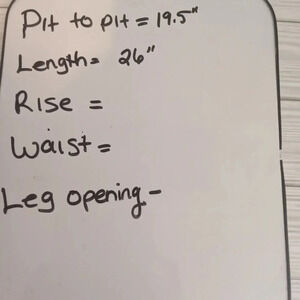 Pit to pit = 19.5"
Length = 26"
Rise =
Waist =
Leg opening -